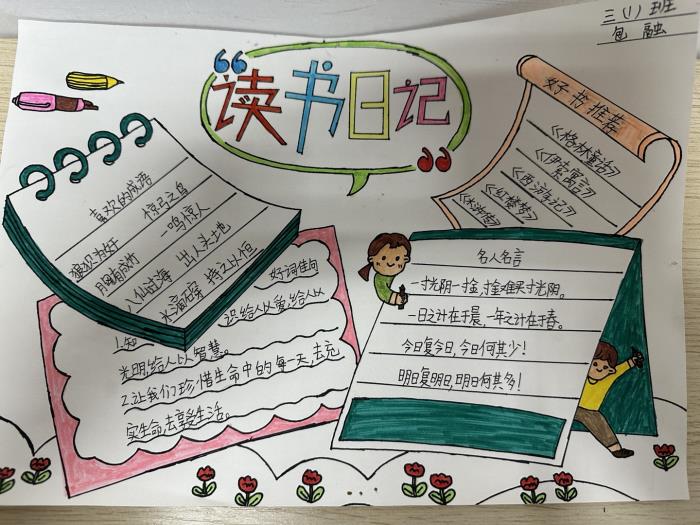 三(1)班
包融
“读书日记”
好书推荐
《格林童话》
《伊索寓言》
《西游记》
《红楼梦》
《水浒传》
喜欢的成语
惊弓之鸟
狼狈为奸 一鸣惊人
胸有成竹 出人头地
八仙过海 持之以恒
水滴石穿
好词佳句
1.知识给人以爱,给人以
光明,给人以智慧。
2.让我们珍惜生命中的每一天,去充
实生命,去享受生活。
名人名言
一寸光阴一寸金,寸金难买寸光阴。
一日之计在于晨,一年之计在于春。
今日复今日,今日何其少!
明日复明日,明日何其多!